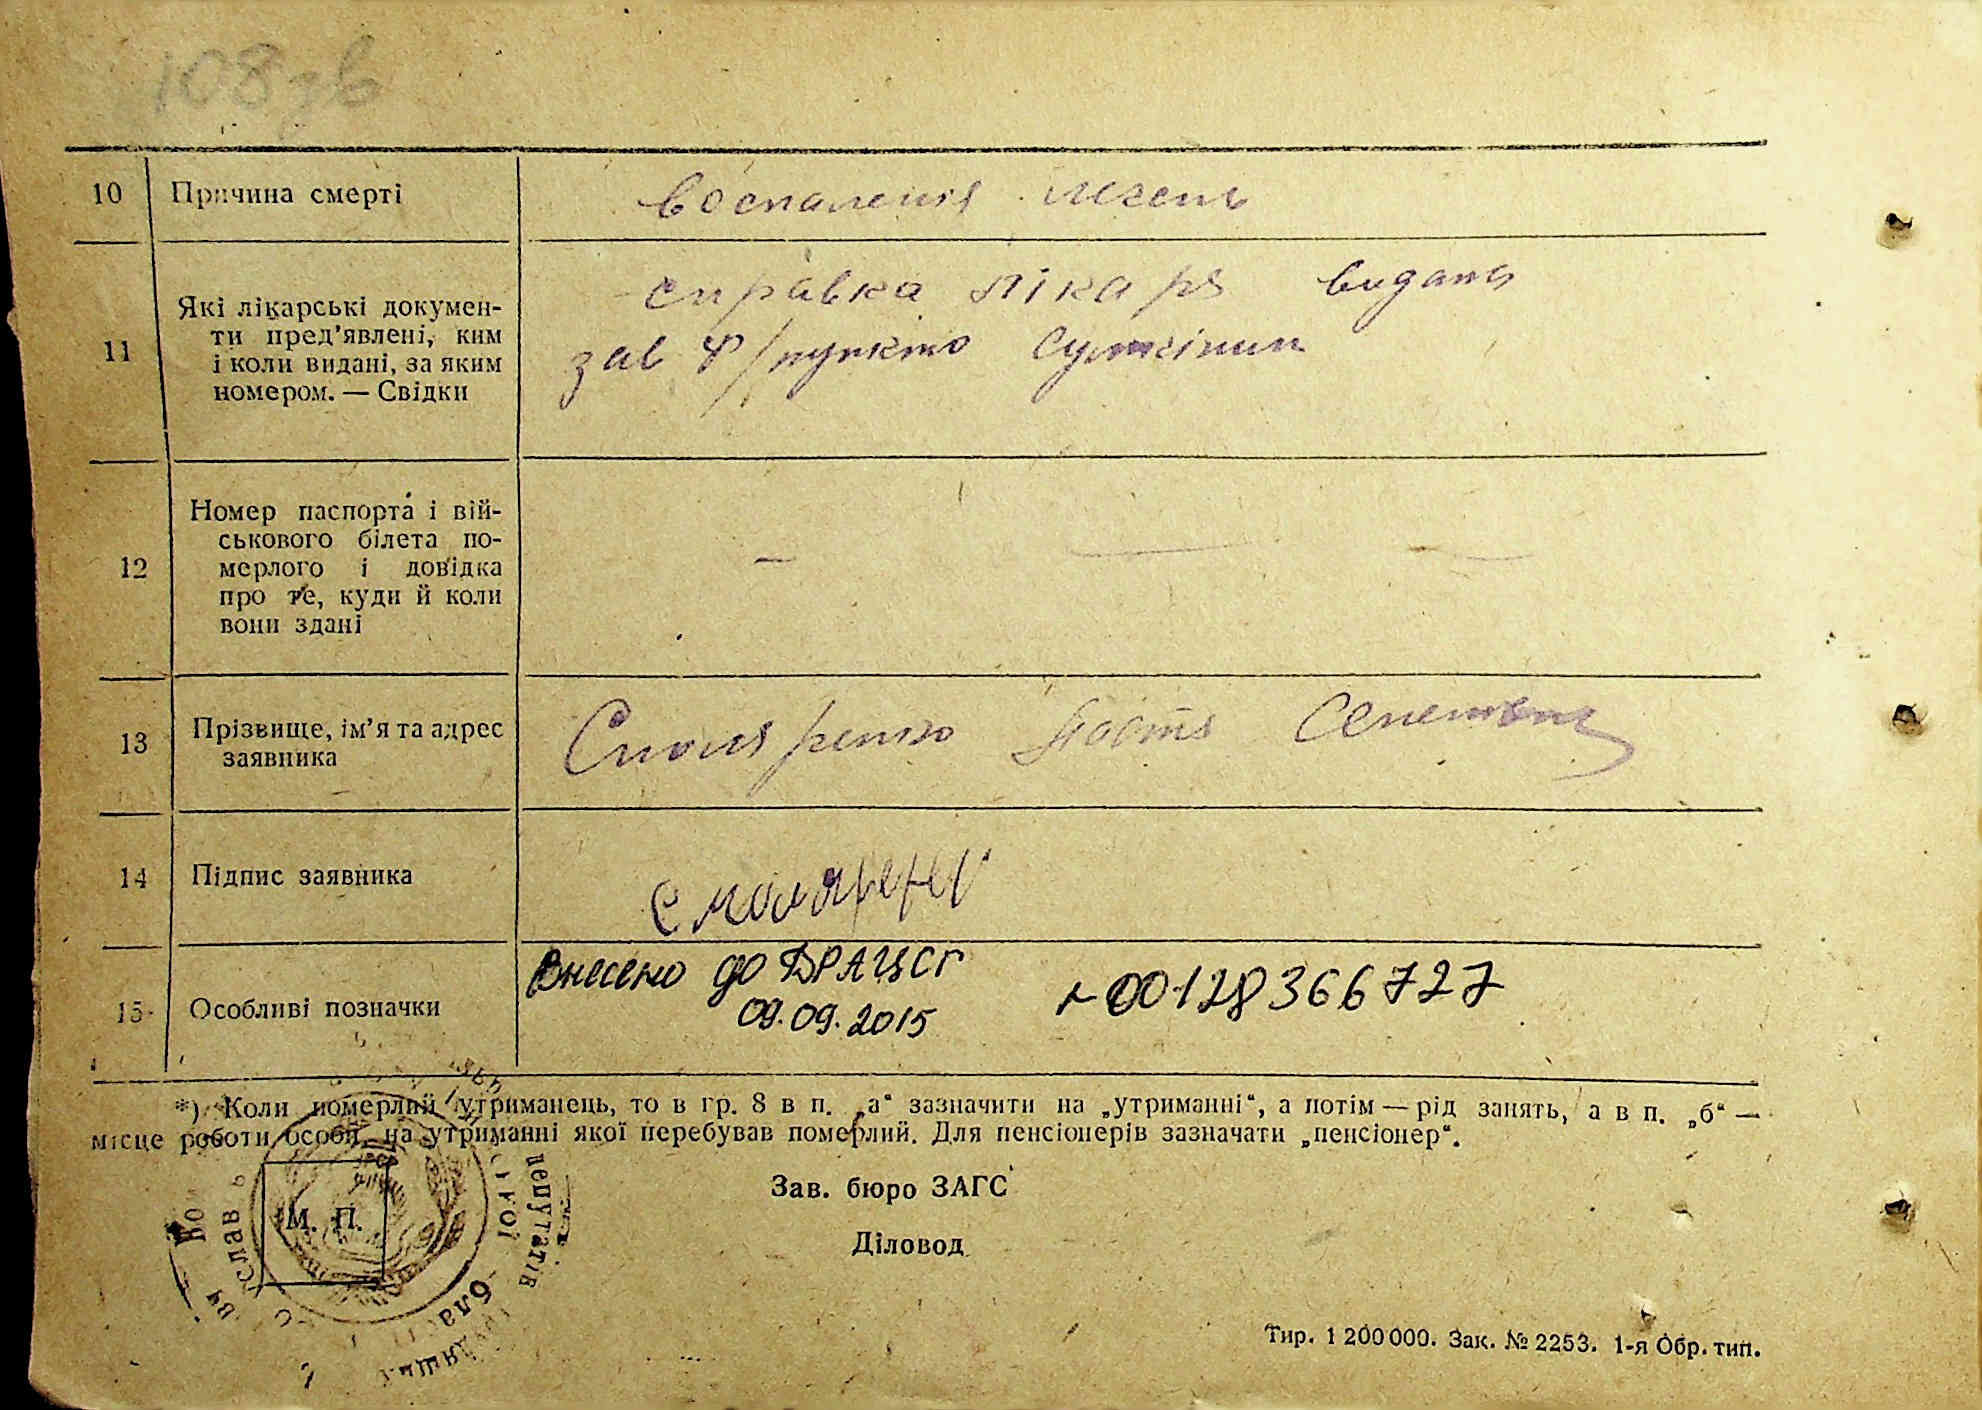 108зв
10 Причина смерті воспаления легень
11 Які лікарські докумен-
ти пред’явлені, ким
і коли видані, за яким
номером. — Свідки
справка лікаря видана
зав Ф/пункто
12 Номер паспорта і вій-
ськового білета по-
мерлого і довідка
про те, куди й коли
вони здані
— — —
13 Прізвище, ім’я та адрес
заявника
14 Підпис заявника
15 Особливі позначки
Внесено до ДРАЦСГ
09.09.2015
00128366727
*) Коли померлий утриманець, то в гр. 8 в п. „а“ зазначити на „утриманні“, а потім — рід занять, а в п. „б“ —
місце роботи особи, на утриманні якої перебував померлий. Для пенсіонерів зазначати „пенсіонер“.
Зав. бюро ЗАГС
М. П.
Діловод
депутатів
Тир. 1 200 000. Зак. № 2253. 1-я Обр. тип.